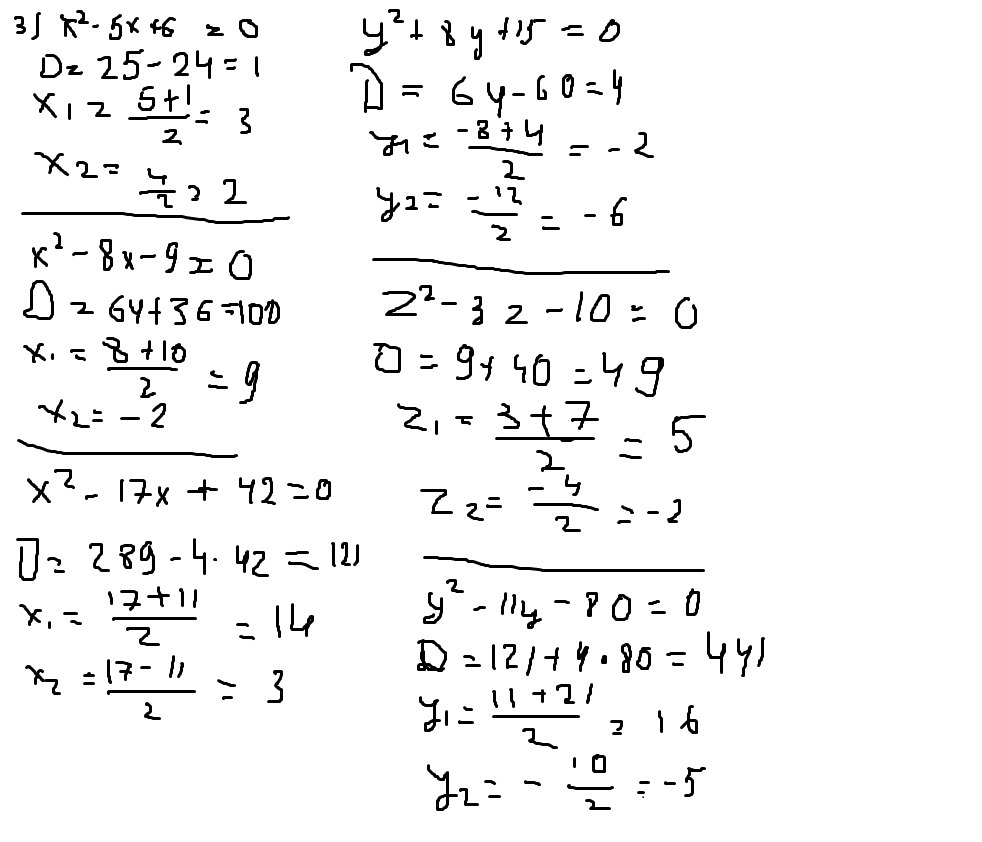 3) x² - 5x + 6 = 0
D = 25 - 24 = 1
x₁ = (5+1)/2 = 3
x₂ = 4/2 = 2
x² - 8x - 9 = 0
D = 64 + 36 = 100
x₁ = (8+10)/2 = 9
x₂ = -2
x² - 17x + 42 = 0
D = 289 - 4·42 = 121
x₁ = (17+11)/2 = 14
x₂ = (17-11)/2 = 3
y² + 8y + 15 = 0
D = 64 - 60 = 4
y₁ = (-8+4)/2 = -2
y₂ = -12/2 = -6
z² - 3z - 10 = 0
D = 9 + 40 = 49
z₁ = (3+7)/2 = 5
z₂ = -4/2 = -2
y² - 11y - 80 = 0
D = 121 + 4·80 = 441
y₁ = (11+21)/2 = 16
y₂ = -10/2 = -5